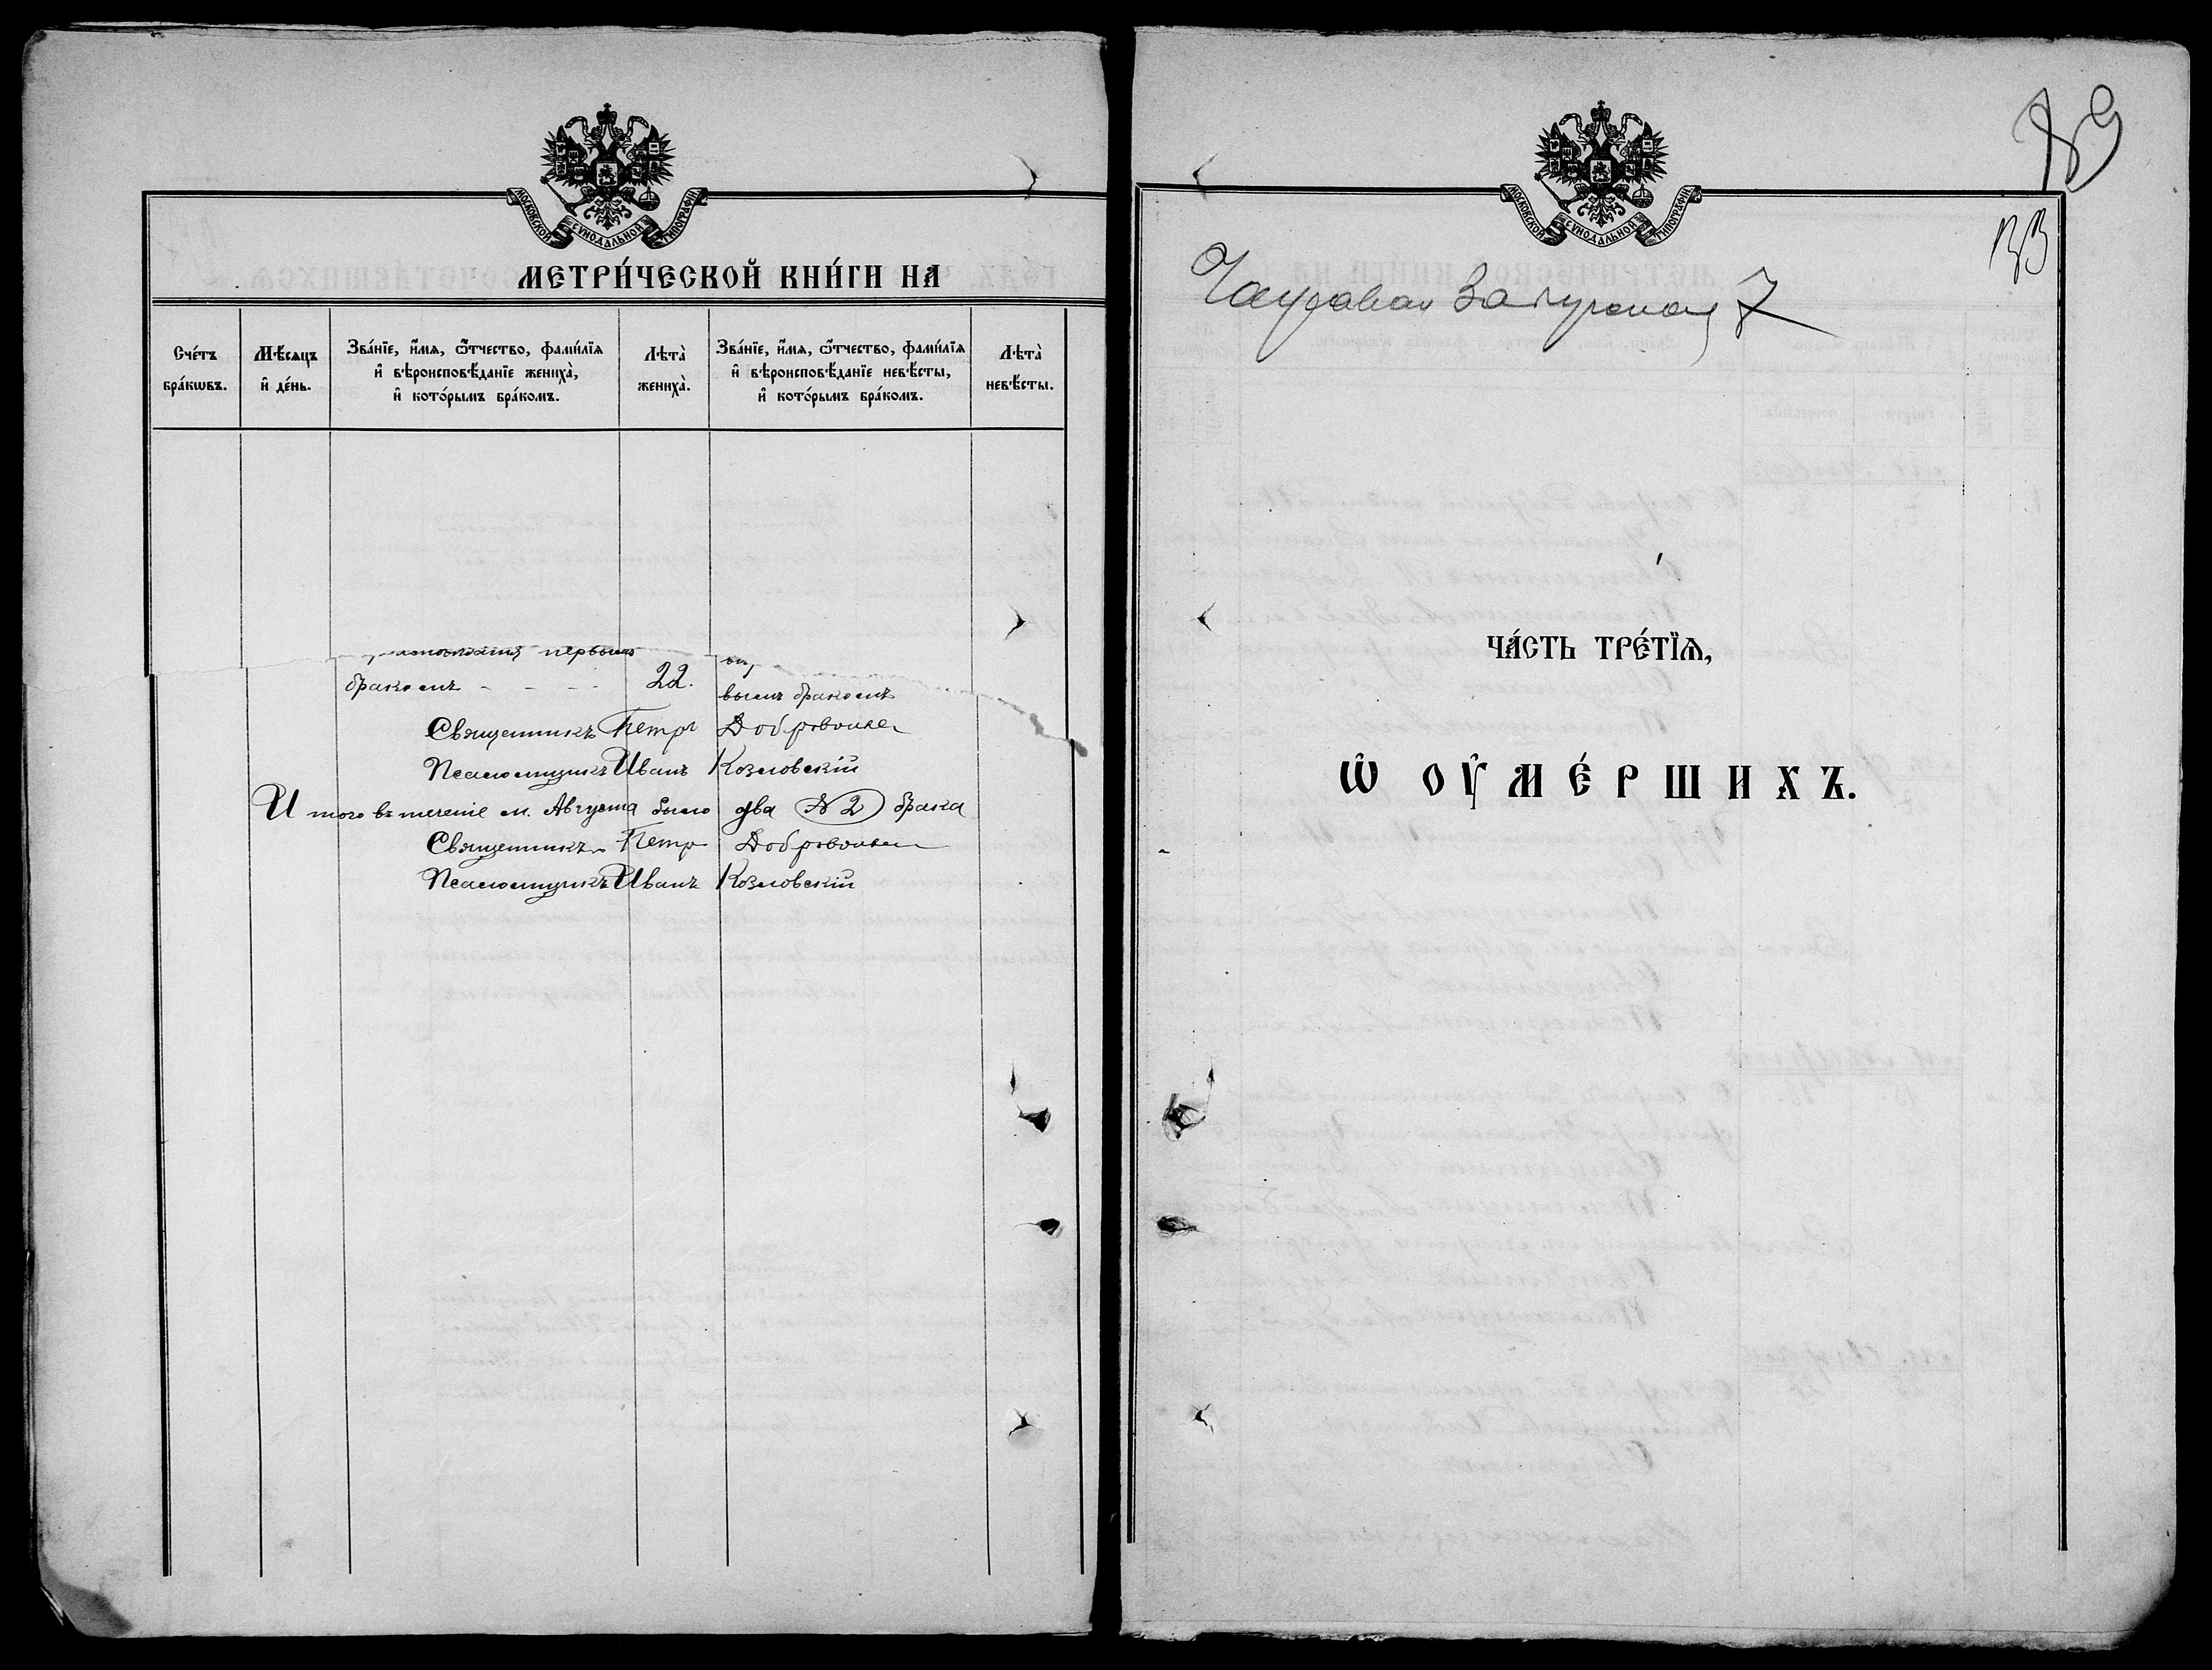 МОСКОВСКОЙ СѴНОДАЛЬНОЙ ТИПОГРАФІИ
МЕТРИ́ЧЕСКОЙ КНИ́ГИ НА
Сче́тъ бра́кѡвъ.
Мѣ́сяцъ и҆ де́нь.
Зва́нїе, и҆́мѧ, ѻ҆́тчество, фамі́лїѧ и҆ вѣроисповѣ́данїе жениха̀, и҆ кото́рымъ бра́комъ.
Лѣта̀ жениха̀.
Зва́нїе, и҆́мѧ, ѻ҆́тчество, фамі́лїѧ и҆ вѣроисповѣ́данїе невѣ́сты, и҆ кото́рымъ бра́комъ.
Лѣта̀ невѣ́сты.
первымъ
бракомъ - - - - 22. вымъ бракомъ
Священникъ Петръ
Псаломщикъ Иванъ Козловскій
Итого въ теченіе м. Августа было два №2 брака
Священникъ Петръ
Псаломщикъ Иванъ Козловскій
89
МОСКОВСКОЙ СѴНОДАЛЬНОЙ ТИПОГРАФІИ
33
7
ЧА́СТЬ ТРЕ́ТЇѦ,
Ѽ ОУ҆МЕ́РШИХЪ.